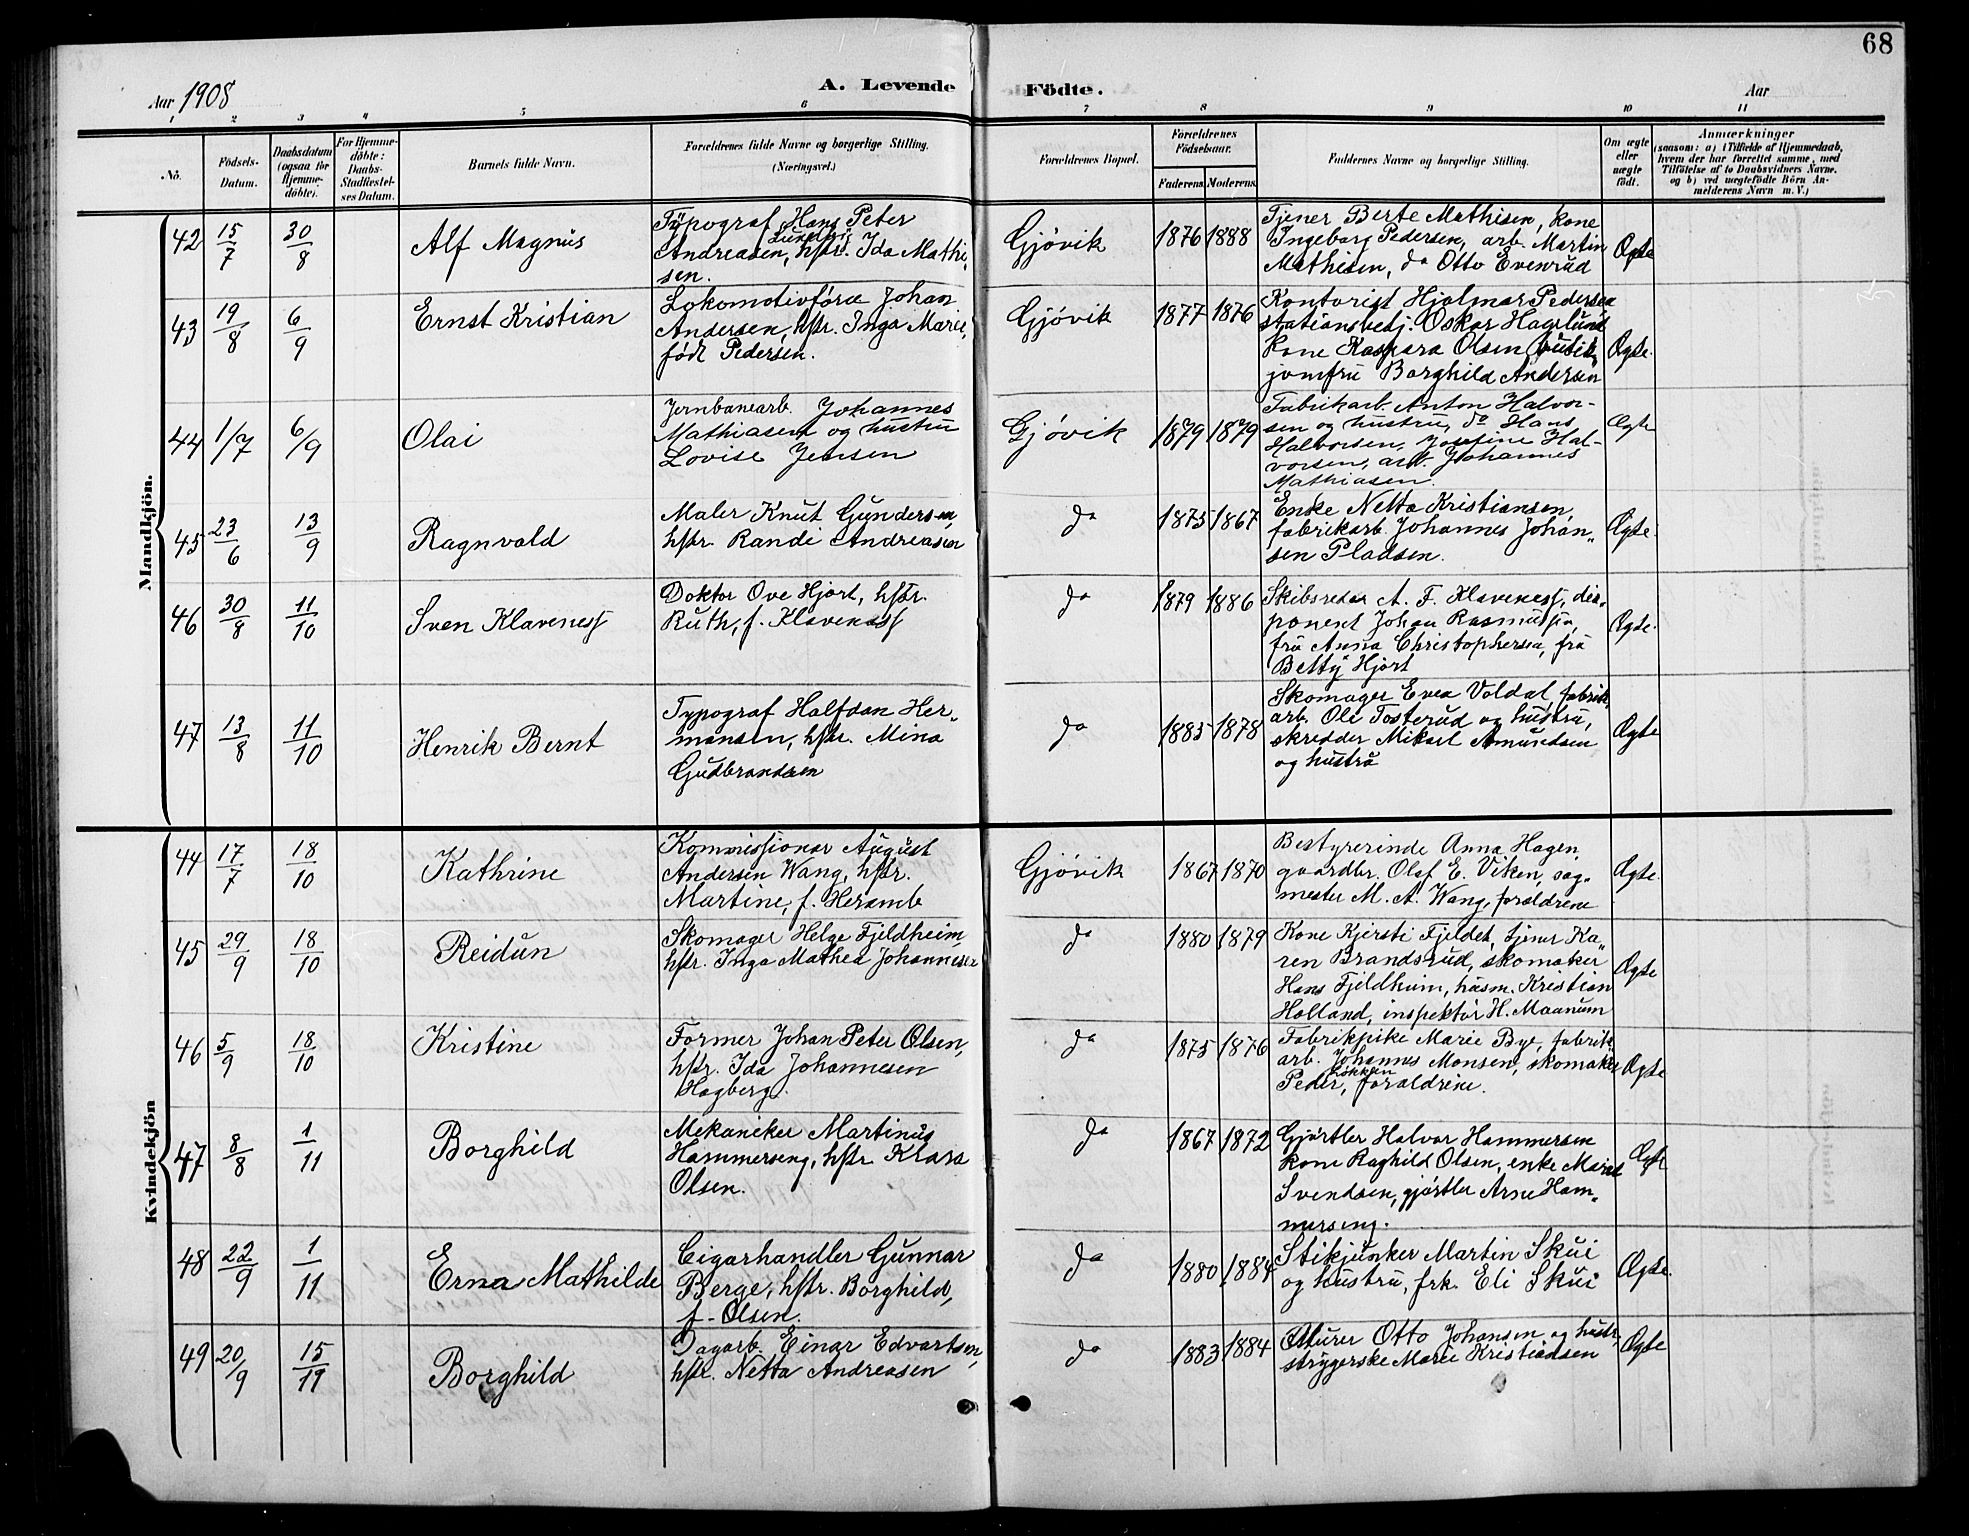 68
Aar 1908
A. Levende
Födte.
Aar
1 2 3 4 5 6 7 8 9 10 11
No.
Födsels-
Datum.
Daabsdatum
(ogsaa for
Hjemme-
döbte).
For Hjemme-
döbte:
Daabs-
Stadfæstel-
ses Datum.
Barnets fulde Navn.
Forældrenes fulde Navne og borgerlige Stilling.
(Næringsvei.)
Forældrenes Bopæl.
Forældrenes
Födselsaar.
Faderens. Moderens.
Faddernes Navne og borgerlige Stilling.
Om ægte
eller
uægte
födt.
Anmærkninger
(saasom: a) i Tilfælde af Hjemmedaab,
hvem der har forrettet samme, med
Tilföielse af to Daabsvidners Navne,
og b) ved uægtefödte Börn An-
melderens Navn m. V.)
Mandkjön.
42 15/7 30/8 Alf Magnus
Typograf Hans Peter
Lundby
Andreasen, hstr. Ida Mathi-
sen.
Gjövik 1876 1888
Tjener Berte Mathisen, kone
Ingeborg Pedersen, arb. Martin
Mathisen, do Otto Evenrud
Ægte
43 19/8 6/9 Ernst Kristian
Lokomotivförer Johan
Andersen, hstr. Inga Marie,
födt Pedersen.
Gjövik 1877 1876
Kontorist Hjalmar Pedersen
stationsbetj. Oskar Haglund
kone Kaspara Olsen, butik-
jomfru Borghild Andersen
Ægte.
44 1/7 6/9 Olai
Jernbanearb. Johannes
Mathiasen og hustru
Lovise Jensen
Gjövik 1879 1879
Fabrikarb. Anton Halvor-
sen og hustru, do Hans
Halvorsen, Josefine Hal-
vorsen, arb. Johannes
Mathiasen.
Ægte
45 23/6 13/9 Ragnvald
Maler Knut Gundersen,
hstr. Randi Andreasen
do 1875 1867
Enke Netta Kristiansen,
fabrikarb Johannes Johan-
sen Pladsen.
Ægte.
46 30/8 11/10 Sven Klaveness
Doktor Ove Hjort, hstr.
Ruth, f. Klaveness
do 1879 1886
Skibsreder A. F. Klaveness, dis-
ponent Johan Rasmussen,
fru Anna Christophersen, fru
Betty Hjort
Ægte.
47 13/8 11/10 Henrik Bernt
Typograf Halfdan Her-
mansen, hstr. Mina
Gudbrandsen
do 1885 1878
Skomager Even Voldal, fabrik-
arb. Ole Tosterud og hustru,
skredder Mikael Amundsen
og hustru
Ægte
Kvindekjön
44 17/7 18/10 Kathrine
Kommissionær August
Andersen Wang, hstr.
Martine, f. Heramb
Gjövik 1867 1870
Bestyrerinde Anna Hagen,
gaardbr. Olaf E. Viken, sag-
mester M. A. Wang, forældrene
Ægte.
45 29/9 18/10 Reidun
Skomager Helge Fjeldheim,
hstr. Inga Mathea Johannesen
do 1880 1879
Kone Kjersti Fjeldet, tjener Ka-
ren Brandsrud, skomaker
Hans Fjeldheim, husm. Kristian
Holland, inspektör H. Maanum
Ægte
46 5/9 18/10 Kristine
Former Johan Peter Olsen,
hstr. Ida Johannesen
Hagberg.
do 1875 1876
Fabrikpike Marie Bye, fabrik-
arb. Johannes Monsen, skomaker
Lökken
Peder, forældrene.
Ægte
47 8/8 1/11 Borghild
Mekaniker Martinus
Hammerseng, hstr Klara
Olsen.
do 1867 1872
Gjörtler Halvor Hammerseng
kone Raghild Olsen, enke Maret
Svendsen, gjörtler Arne Ham-
merseng.
Ægte
48 22/9 1/11 Erna Mathilde
Cigarhandler Gunnar
Berge, hstr. Borghild,
f. Olsen.
do 1880 1884
Stikjunker Martin Skui
og hustru, frk. Eli Skui
Ægte.
49 20/9 15/11 Borghild
Dagarb. Einar Edvartsen,
hstr. Netta Andreasen
do 1883 1884
Murer Otto Johansen og hustr.
strygerske Marie Kristiansen
Ægte